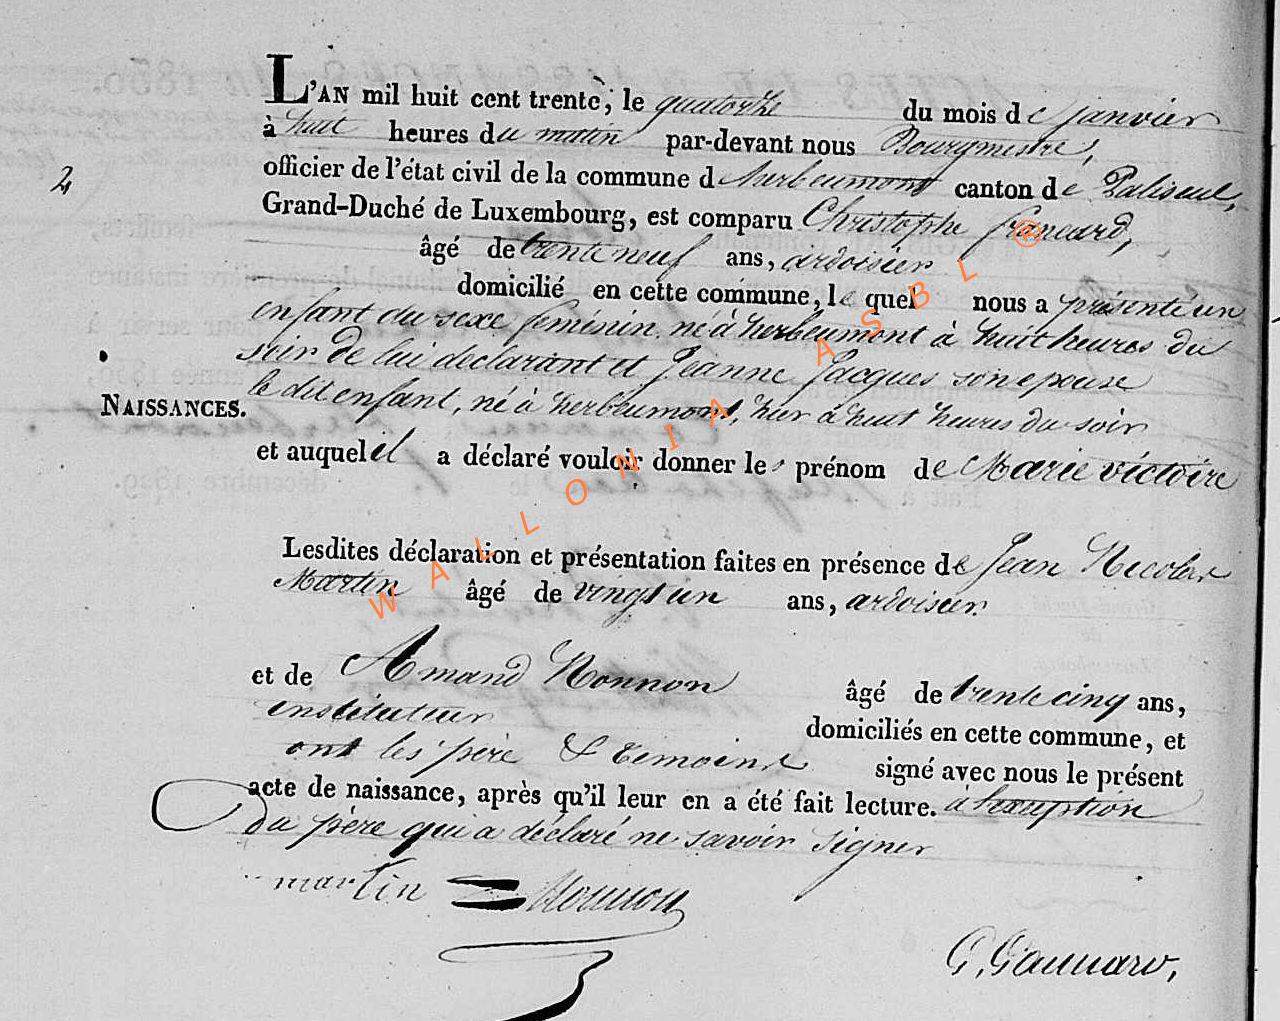 L'AN mil huit cent trente, le quatorze du mois de janvier
à huit heures du matin par-devant nous Bourgmestre,
officier de l'état civil de la commune d'herbeumont canton de Paliseul,
2
Grand-Duché de Luxembourg, est comparu Christophe francard,
âgé de trente neuf ans, ardoisier
domicilié en cette commune, le quel nous a présenté un
enfant du sexe féminin né à herbeumont à huit heures du
soir de lui déclarant et Jeanne Jacques son epouse
le dit enfant, né à herbeumont, hier à huit heures du soir
NAISSANCES.
et auquel il a déclaré vouloir donner les prénom de Marie victoire
Lesdites déclaration et présentation faites en présence de Jean Nicolas
Martin âgé de vingt un ans, ardoisier
et de Amand Nonnon âgé de trente cinq ans,
instituteur domiciliés en cette commune, et
ont les père & témoins signé avec nous le présent
acte de naissance, après qu'il leur en a été fait lecture. à l'exception
du père qui a déclaré ne savoir signer
martin Nonnon
WALLONIA ASBL ®